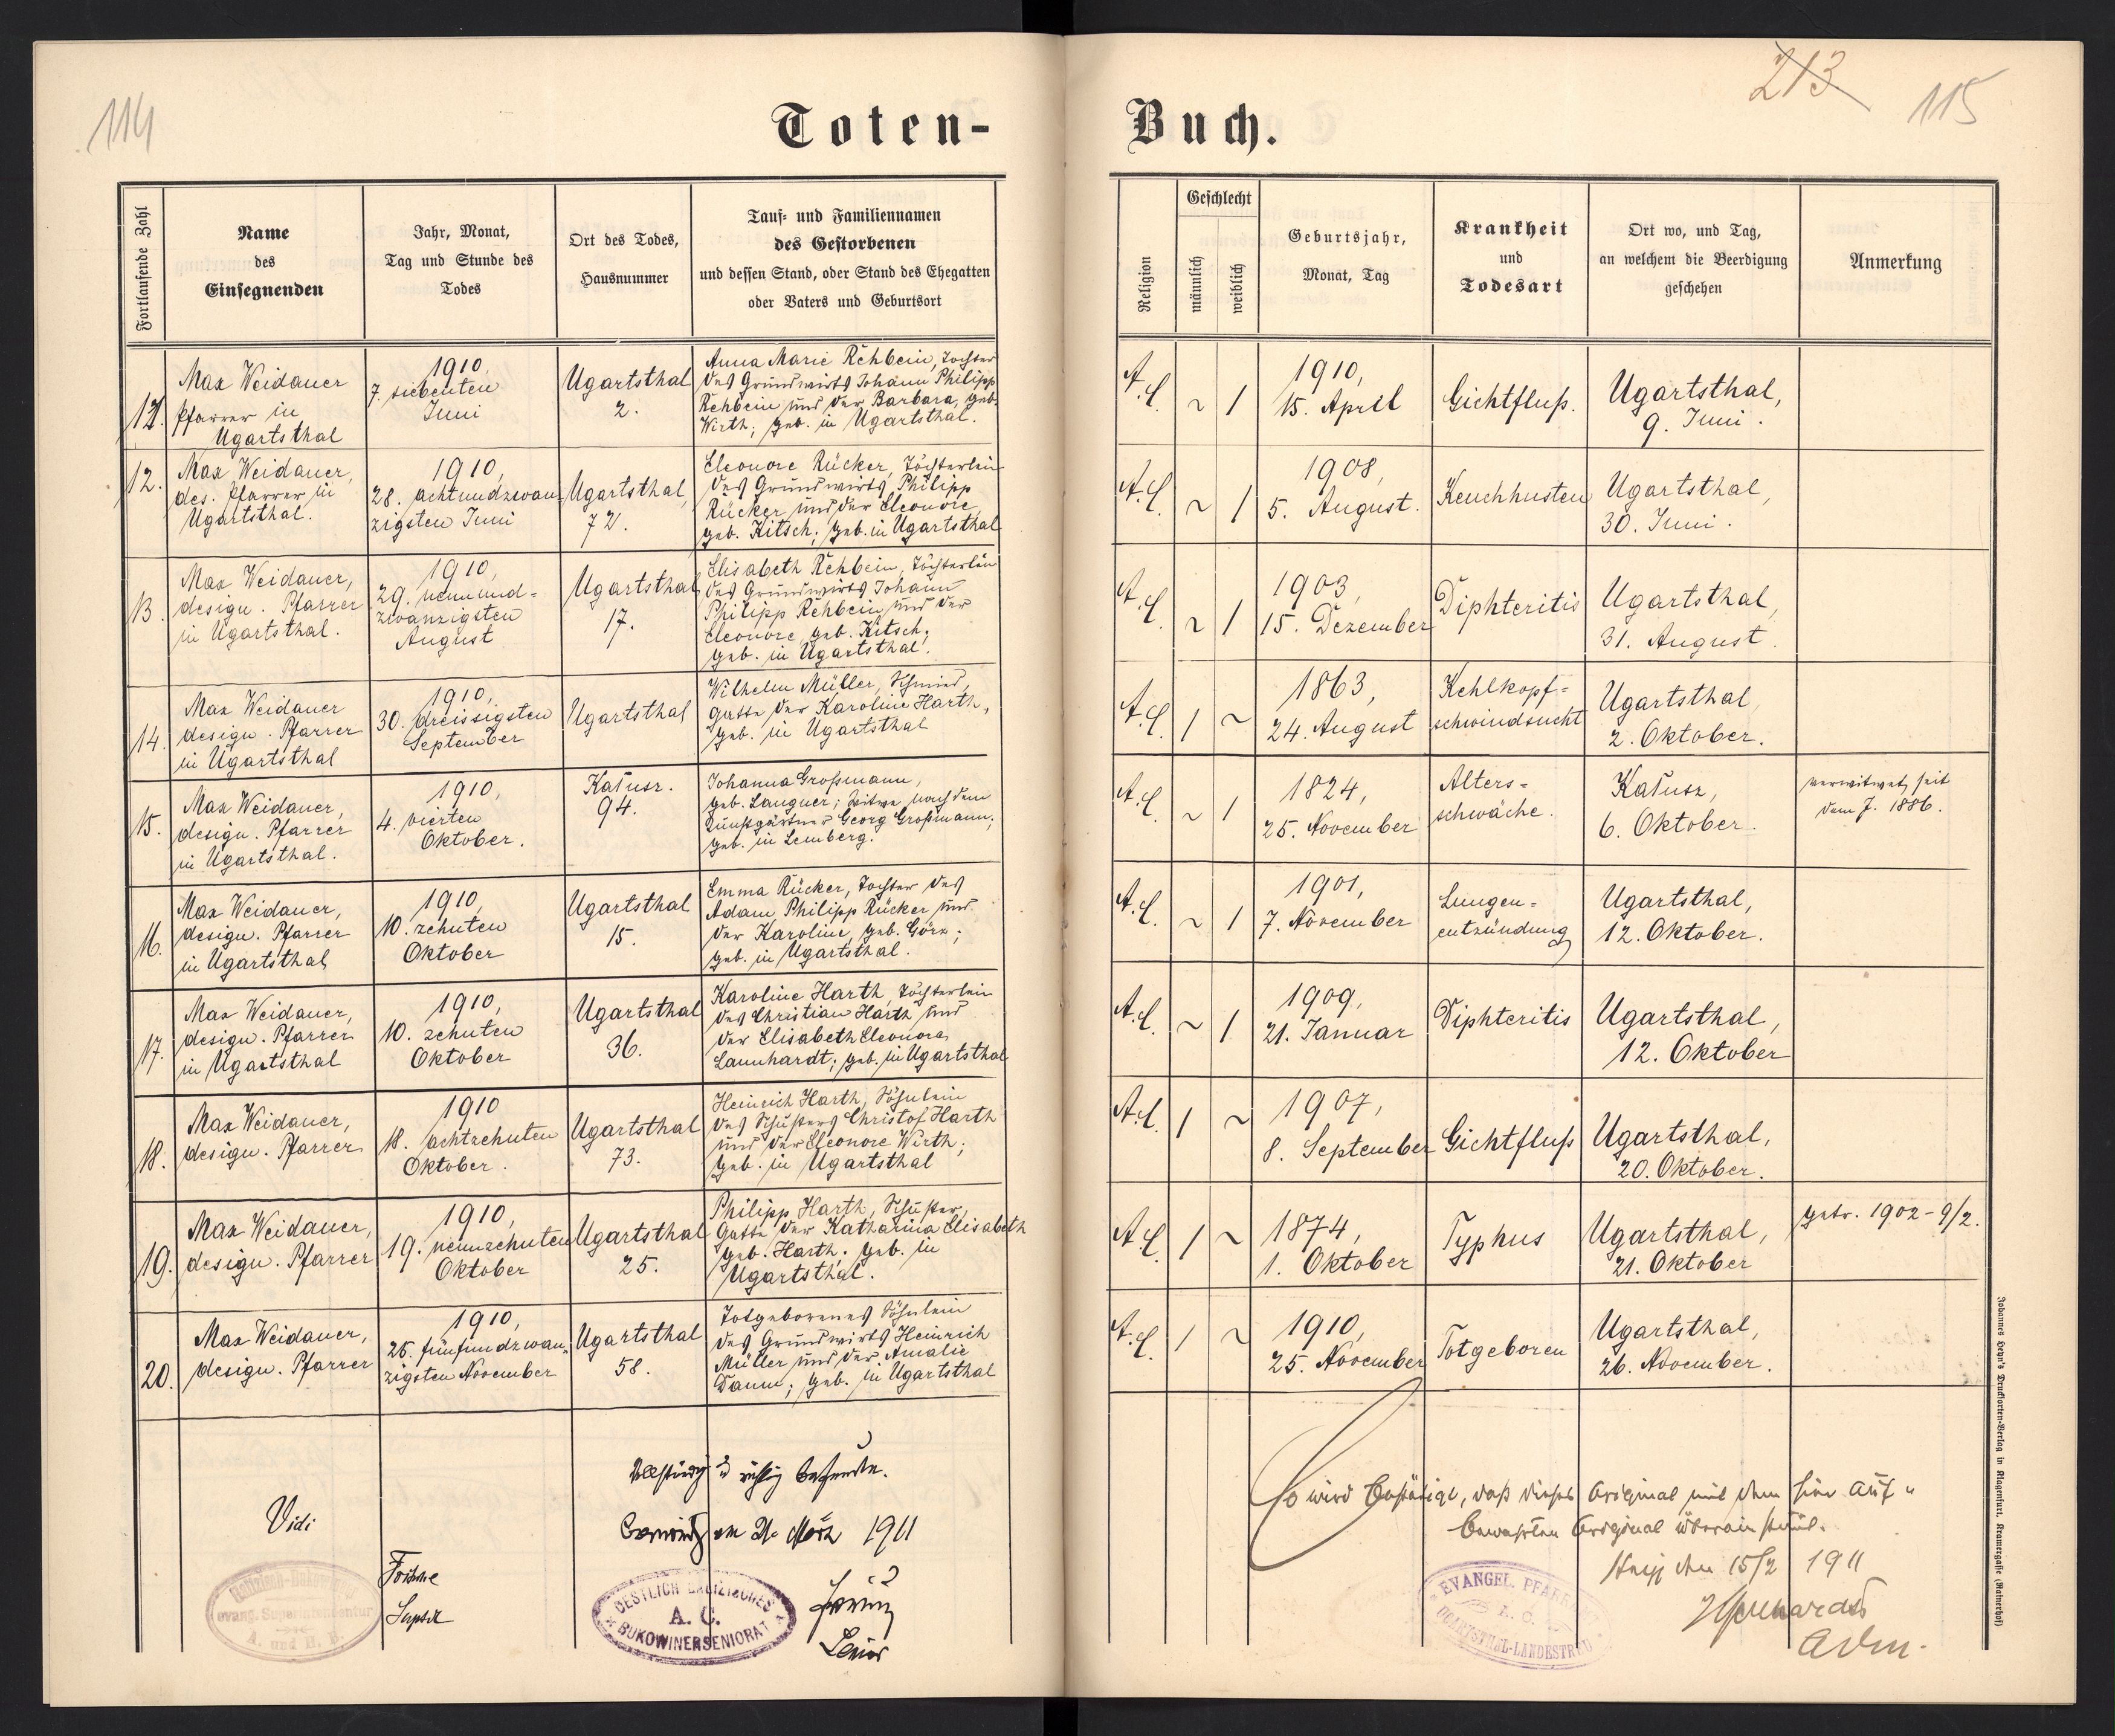 114
Toten-
Fortlaufende Zahl
Name
des
Einsegnenden
Jahr, Monat,
Tag und Stunde des
Todes
Ort des Todes,
Hausnummer
Tauf- und Familiennamen
des Gestorbenen
und dessen Stand, oder Stand des Ehegatten
oder Vaters und Geburtsort
11.
Max Weidauer
Pfarrer in
Ugartsthal
1910,
7. siebenten
Juni
Ugartsthal
2.
Anna Marie Rehbein, Tochter
des Grundwirts Johann Philipp
Rehbein und der Barbara, geb.
Wirth; geb. in Ugartsthal.
12.
Max Weidauer,
des. Pfarrer in
Ugartsthal.
1910,
28. achtundzwan-
zigsten Juni
Ugartsthal,
72.
Eleonore Rücker, Töchterlein
des Grundwirts Philipp
Rücker und der Eleonore,
geb. Kitsch; geb. in Ugartsthal
13.
Max Weidauer,
design. Pfarrer
in Ugartsthal.
1910,
29. neunund-
zwanzigsten
August
Ugartsthal
17.
Elisabeth Rehbein, Töchterlein
des Grundwirts Johann
Philipp Rehbein und der
Eleonore, geb. Kitsch;
geb. in Ugartsthal.
14.
Max Weidauer
design. Pfarrer
in Ugartsthal
1910,
30. dreissigsten
September
Ugartsthal
Wilhelm Müller, Schmied,
Gatte der Karoline Harth,
geb. in Ugartsthal
15.
Max Weidauer,
design. Pfarrer
in Ugartsthal.
1910,
4. vierten
Oktober.
Kałusz.
94.
Johanna Großmann,
geb. Langner; Witwe nach dem
Kunstgärtner Georg Großmann;
geb. in Lemberg.
16.
Max Weidauer,
design. Pfarrer
in Ugartsthal
1910,
10. zehnten
Oktober
Ugartsthal
15.
Emma Rücker, Tochter des
Adam Philipp Rücker und
der Karoline, geb. Görz;
geb. in Ugartsthal.
17.
Max Weidauer,
design. Pfarrer
in Ugartsthal
1910,
10. zehnten
Oktober
Ugartsthal
36.
Karoline Harth, Töchterlein
des Christian Harth und
der Elisabeth Eleonora
Launhardt; geb. in Ugartsthal
18.
Max Weidauer,
design. Pfarrer
1910
18. achtzehnten
Oktober.
Ugartsthal
73.
Heinrich Harth, Söhnlein
des Schusters Christof Harth
und der Eleonore Wirth;
geb. in Ugartsthal
19.
Max Weidauer,
design. Pfarrer
1910,
19. neunzehnten
Oktober
Ugartsthal
25.
Philipp Harth, Schuster,
Gatte der Katharina Elisabeth
geb. Harth; geb. in
Ugartsthal.
20.
Max Weidauer,
design. Pfarrer
1910,
25. fünfundzwan-
zigsten November
Ugartsthal
58.
Totgeborenes Söhnlein
des Grundwirts Heinrich
Müller und der Amalie
Damm; geb. in Ugartsthal
Vidi
Vollständig u richtig befunden.
am 21. März 1911
evang. Superintendentur
A. und H. B.
OESTLICH GALIZISCHES
A. C.
BUKOWINERSENIORAT
Senior
213
115
Buch.
Religion
Geschlecht
männlich
weiblich
Geburtsjahr,
Monat, Tag
Krankheit
und
Todesart
Ort wo, und Tag,
an welchem die Beerdigung
geschehen
Anmerkung
A.C.
~
1
1910,
15. April
Gichtfluß.
Ugartsthal,
9. Juni.
A.C.
~
1
1908,
5. August.
Keuchhusten
Ugartsthal,
30. Juni.
A.C.
~
1
1903,
15. Dezember
Diphteritis
Ugartsthal,
31. August.
A.C.
1
~
1863,
24. August
Kehlkopf-
schwindsucht
Ugartsthal,
2. Oktober.
A.C.
~
1
1824,
25. November
Alters-
schwäche.
Kałusz,
6. Oktober.
verwitwet seit
dem J. 1886.
A.C.
~
1
1901,
7. November
Lungen-
entzündung
Ugartsthal,
12. Oktober.
A.C.
~
1
1909,
21. Januar
Diphteritis
Ugartsthal,
12. Oktober
A.C.
1
~
1907,
8. September
Gichtfluß
Ugartsthal,
20. Oktober.
A.C.
1
~
1874,
1. Oktober
Typhus
Ugartsthal,
21. Oktober
getr. 1902-9/2.
A.C.
1
~
1910,
25. November
Totgeboren
Ugartsthal,
26. November.
Es wird bestätigt, daß dieses Original mit dem hier auf-
bewahrten Original übereinstimmt.
Stryj den 15/2 1911
Adm.
EVANGEL. PFARR
A. C.
UGARTSTHAL-LANDESTREU
Johannes Heyn's Drucksorten-Verlag in Klagenfurt, Kramergasse (Rainerhof)